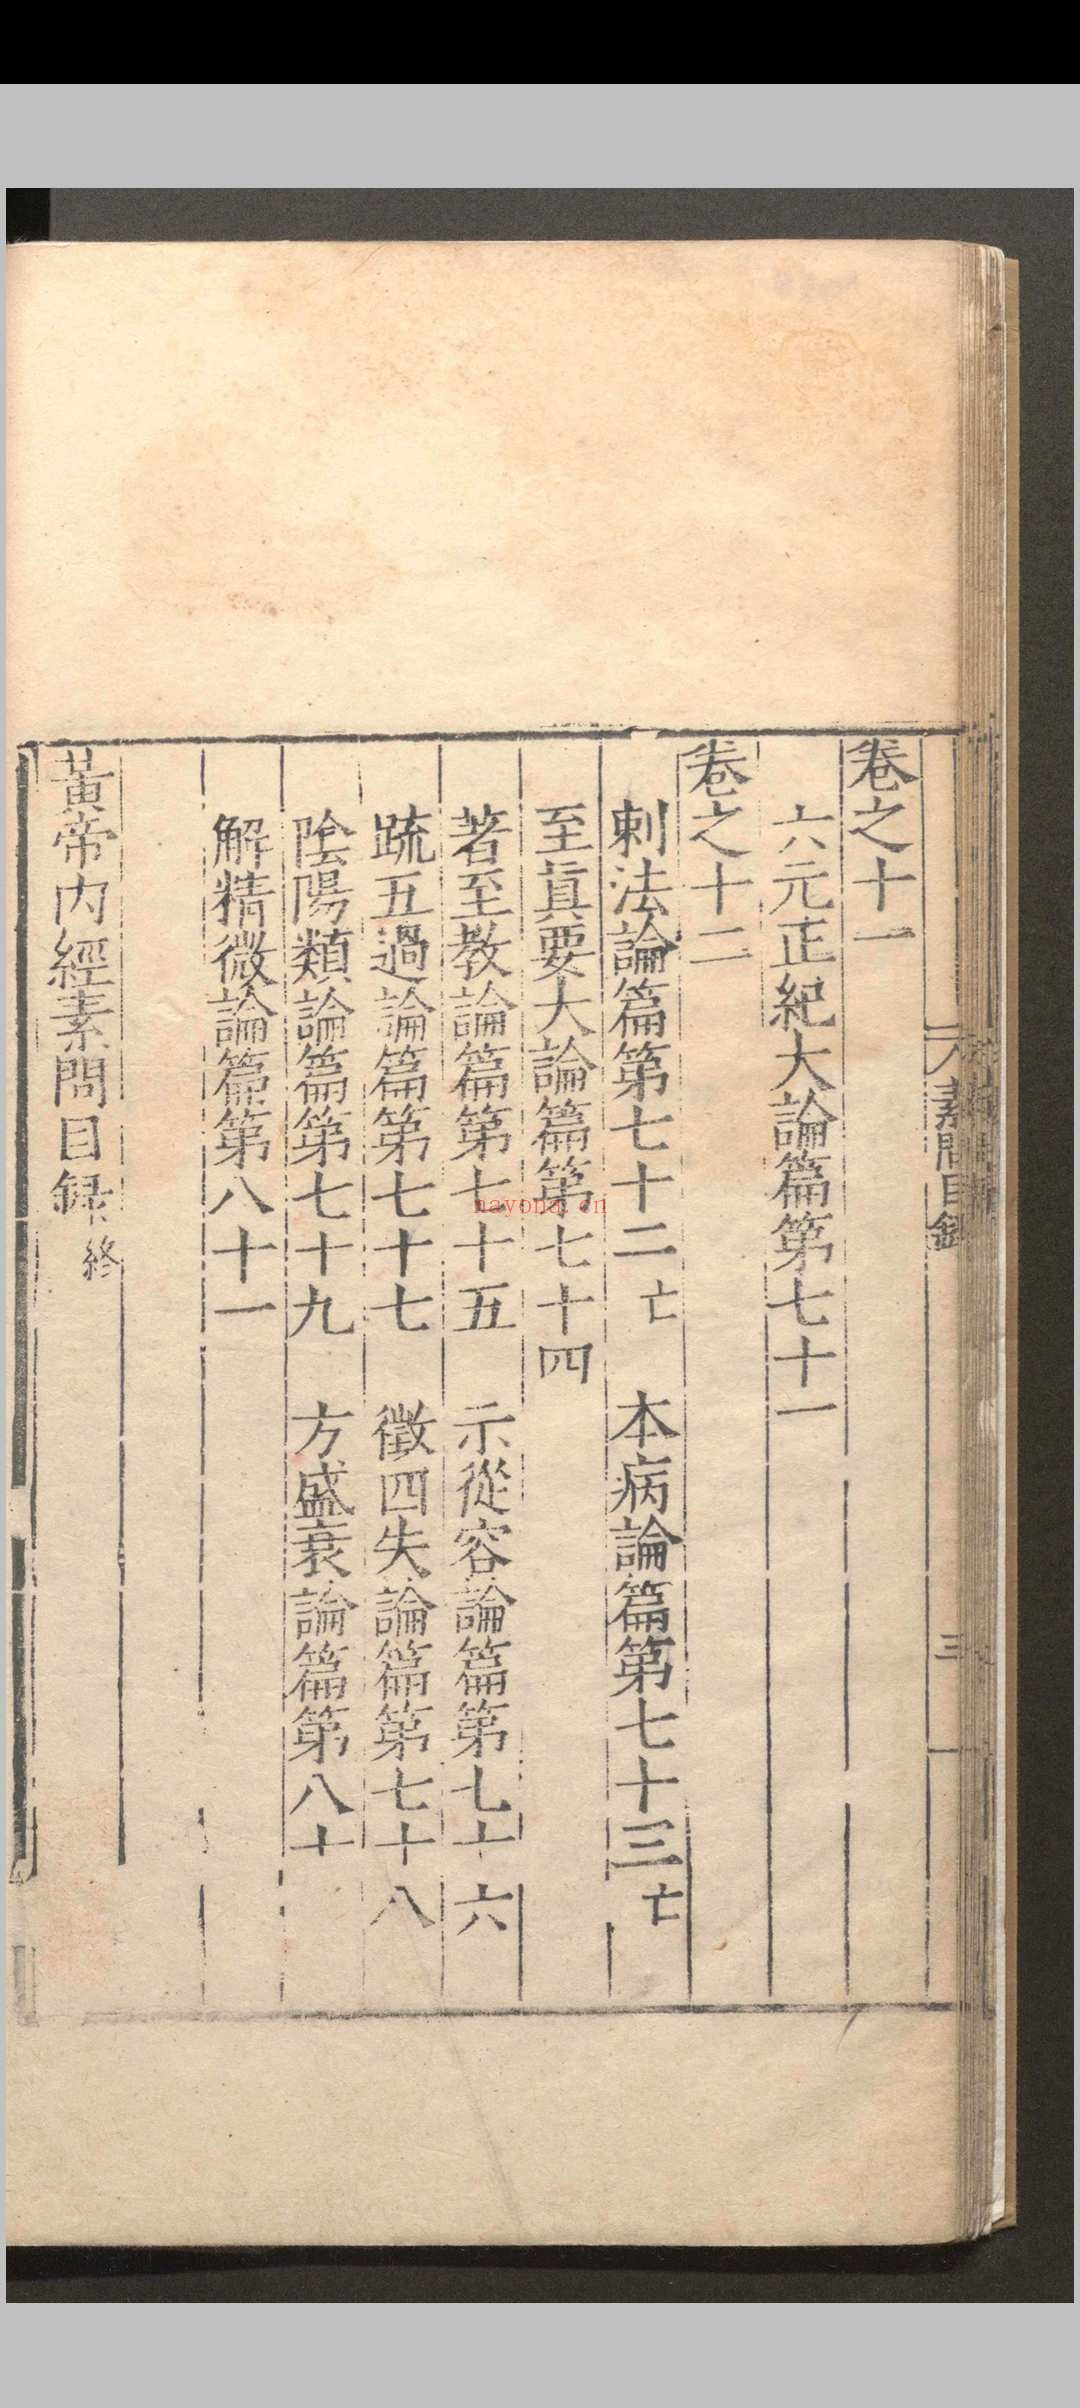 卷之十一
六元正紀大論篇第七十一
卷之十二
刺法論篇第七十二 亡 本病論篇第七十三 亡
至眞要大論篇第七十四
著至教論篇第七十五 示從容論篇第七十六
疏五過論篇第七十七 徵四失論篇第七十八
陰陽類論篇第七十九 方盛衰論篇第八十
解精微論篇第八十一
黃帝內經素問目録 終
素問目錄
三
nayona.cn